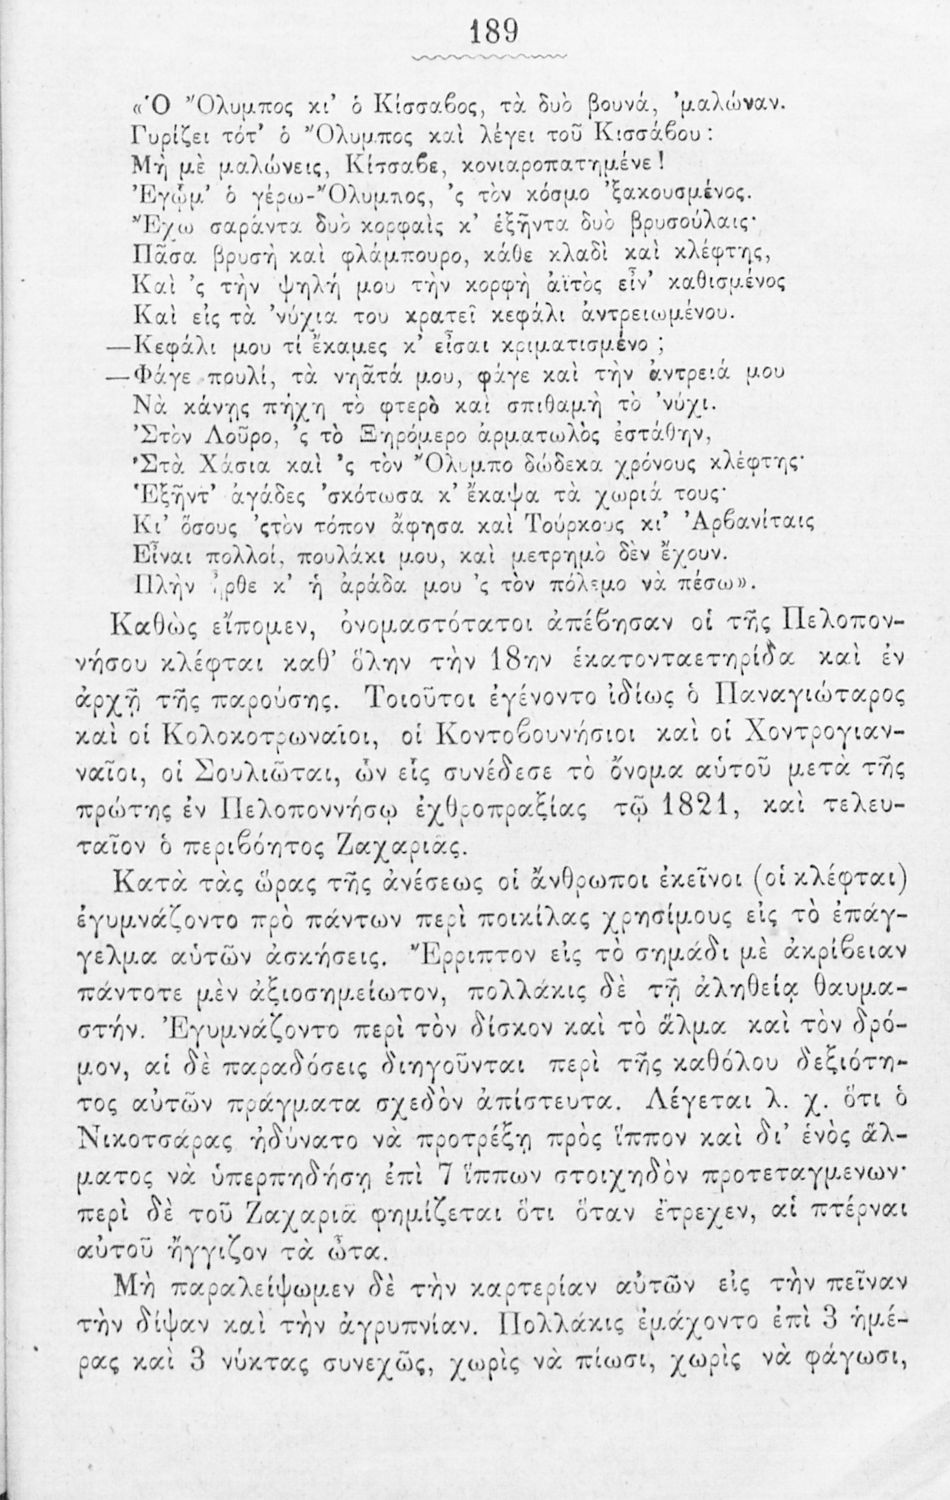 189
«Ὁ Ὄλυμπος κι' ὁ Κίσσαβος, τὰ δυὸ βουνά, 'μαλώναν.
Γυρίζει τότ' ὁ Ὄλυμπος καὶ λέγει τοῦ Κισσάβου:
Μὴ μὲ μαλώνεις, Κίσσαβε, κονιαροπατημένε!
Ἐγῷμ' ὁ γέρω-Ὄλυμπος, 'ς τὸν κόσμο 'ξακουσμένος.
Ἔχω σαράντα δυὸ κορφαὶς κ' ἑξῆντα δυὸ βρυσούλαις·
Πᾶσα βρυσὴ καὶ φλάμπουρο, κάθε κλαδὶ καὶ κλέφτης,
Καὶ 'ς τὴν ψηλή μου τὴν κορφὴ ἀϊτὸς εἶν' καθισμένος
Καὶ εἰς τὰ 'νύχια του κρατεῖ κεφάλι ἀντρειωμένου.
—Κεφάλι μου τί ἔκαμες κ' εἶσαι κριματισμένο ;
—Φάγε πουλί, τὰ νῃᾶτά μου, φάγε καὶ τὴν ἀντρειά μου
Νὰ κάνῃς πήχη τὸ φτερὸ καὶ σπιθαμὴ τὸ 'νύχι.
'Στὸν Λοῦρο, 'ς τὸ Ξηρόμερο ἀρματωλὸς ἐστάθην,
'Στὰ Χάσια καὶ 'ς τὸν Ὄλυμπο δώδεκα χρόνους κλέφτης·
Ἑξῆντ' ἀγάδες 'σκότωσα κ' ἔκαψα τὰ χωριά τους·
Κι' ὅσους 'ςτὸν τόπον ἄφησα καὶ Τούρκους κι' Ἀρβανίταις
Εἶναι πολλοί, πουλάκι μου, καὶ μετρημὸ δὲν ἔχουν.
Πλὴν ἦρθε κ' ἡ ἀράδα μου 'ς τὸν πόλεμο νὰ πέσω».
Καθὼς εἴπομεν, ὀνομαστότατοι ἀπέβησαν οἱ τῆς Πελοπον-
νήσου κλέφται καθ' ὅλην τὴν 18ην ἑκατονταετηρίδα καὶ ἐν
ἀρχῇ τῆς παρούσης. Τοιοῦτοι ἐγένοντο ἰδίως ὁ Παναγιώταρος
καὶ οἱ Κολοκοτρωναῖοι, οἱ Κοντοβουνήσιοι καὶ οἱ Χοντρογιαν-
ναῖοι, οἱ Σουλιῶται, ὧν εἷς συνέδεσε τὸ ὄνομα αὑτοῦ μετὰ τῆς
πρώτης ἐν Πελοποννήσῳ ἐχθροπραξίας τῷ 1821, καὶ τελευ-
ταῖον ὁ περιβόητος Ζαχαριᾶς.
Κατὰ τὰς ὥρας τῆς ἀνέσεως οἱ ἄνθρωποι ἐκεῖνοι (οἱ κλέφται)
ἐγυμνάζοντο πρὸ πάντων περὶ ποικίλας χρησίμους εἰς τὸ ἐπάγ-
γελμα αὑτῶν ἀσκήσεις. Ἔρριπτον εἰς τὸ σημάδι μὲ ἀκρίβειαν
πάντοτε μὲν ἀξιοσημείωτον, πολλάκις δὲ τῇ ἀληθείᾳ θαυμα-
στήν. Ἐγυμνάζοντο περὶ τὸν δίσκον καὶ τὸ ἅλμα καὶ τὸν δρό-
μον, αἱ δὲ παραδόσεις διηγοῦνται περὶ τῆς καθόλου δεξιότη-
τος αὐτῶν πράγματα σχεδὸν ἀπίστευτα. Λέγεται λ. χ. ὅτι ὁ
Νικοτσάρας ἠδύνατο νὰ προτρέξῃ πρὸς ἵππον καὶ δι' ἑνὸς ἅλ-
ματος νὰ ὑπερπηδήσῃ ἐπὶ 7 ἵππων στοιχηδὸν προτεταγμενων·
περὶ δὲ τοῦ Ζαχαριᾶ φημίζεται ὅτι ὅταν ἔτρεχεν, αἱ πτέρναι
αὐτοῦ ἤγγιζον τὰ ὦτα.
Μὴ παραλείψωμεν δὲ τὴν καρτερίαν αὐτῶν εἰς τὴν πεῖναν
τὴν δίψαν καὶ τὴν ἀγρυπνίαν. Πολλάκις ἐμάχοντο ἐπὶ 3 ἡμέ-
ρας καὶ 3 νύκτας συνεχῶς, χωρὶς νὰ πίωσι, χωρὶς νὰ φάγωσι,